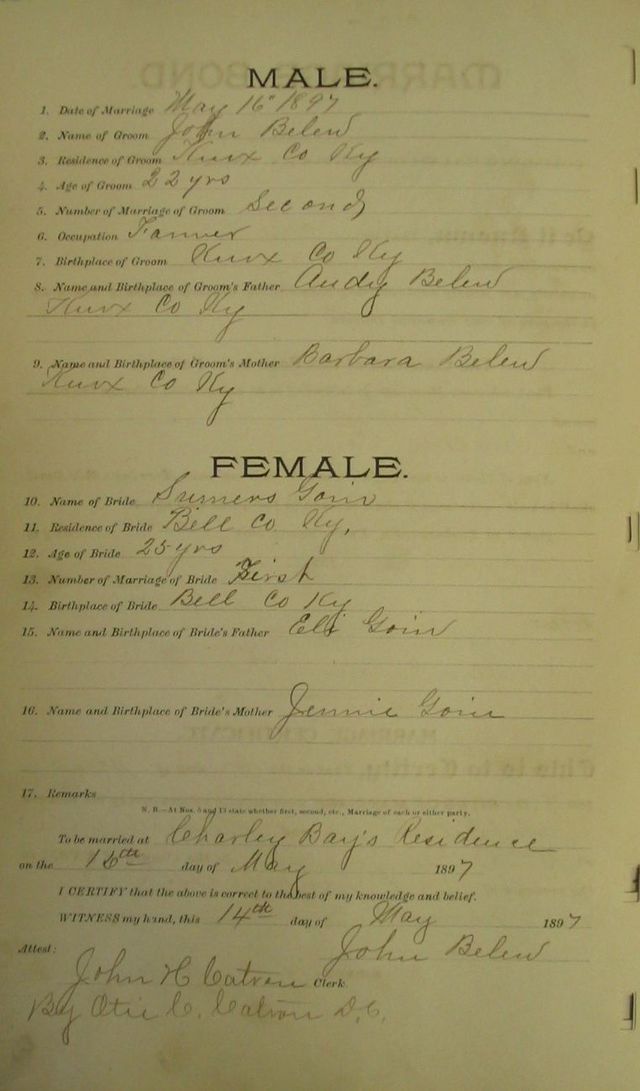 MALE.
1. Date of Marriage May 16" 1897
2. Name of Groom John Belew
3. Residence of Groom Knox Co Ky
4. Age of Groom 22 yrs
5. Number of Marriage of Groom Second
6. Occupation Farmer
7. Birthplace of Groom Knox Co Ky
8. Name and Birthplace of Groom's Father Andy Belew
Knox Co Ky
9. Name and Birthplace of Groom's Mother Barbara Belew
Knox Co Ky
FEMALE.
10. Name of Bride Sumers Goin
11. Residence of Bride Bell Co Ky,
12. Age of Bride 25 yrs
13. Number of Marriage of Bride First
14. Birthplace of Bride Bell Co Ky
15. Name and Birthplace of Bride's Father Eli Goin
16. Name and Birthplace of Bride's Mother Jennie Goin
17. Remarks
N. B.—At Nos. 5 and 13 state whether first, second, etc., Marriage of each or either party.
To be married at Charley Bay's Residence
on the 16th day of May 1897
I CERTIFY that the above is correct to the best of my knowledge and belief.
WITNESS my hand, this 14th day of May 1897
John Belew
Attest:
John H Catron Clerk.
By Otis C. Catron D.C.